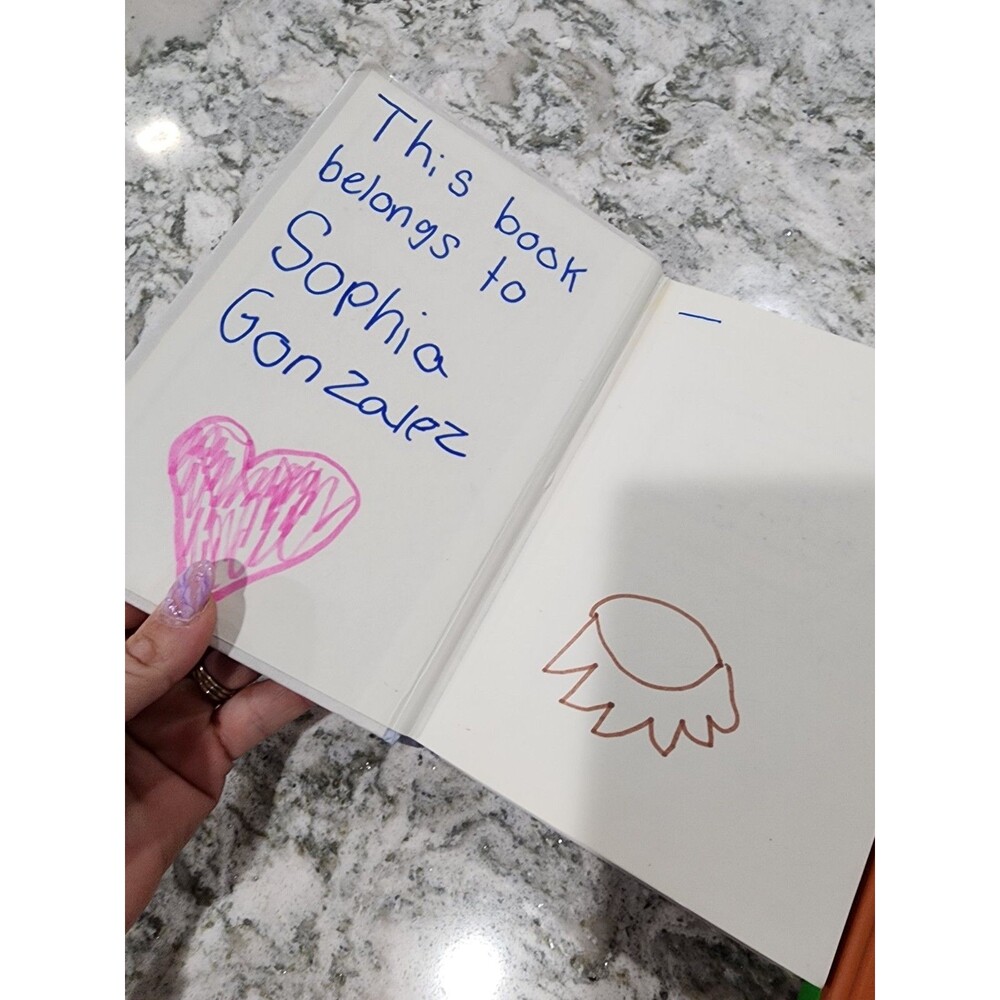 This book
belongs to
Sophia
Gonzalez